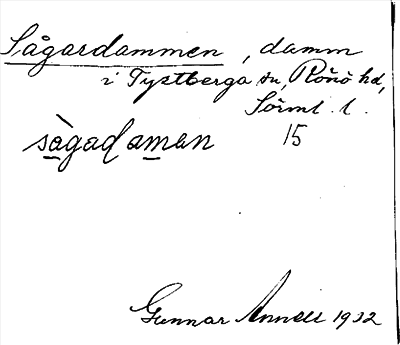 Sågardammen, damm
i Tystberga sn, Rönö hd,
Sörml. l.
sàgadaman 15
Gunnar Annell 1932